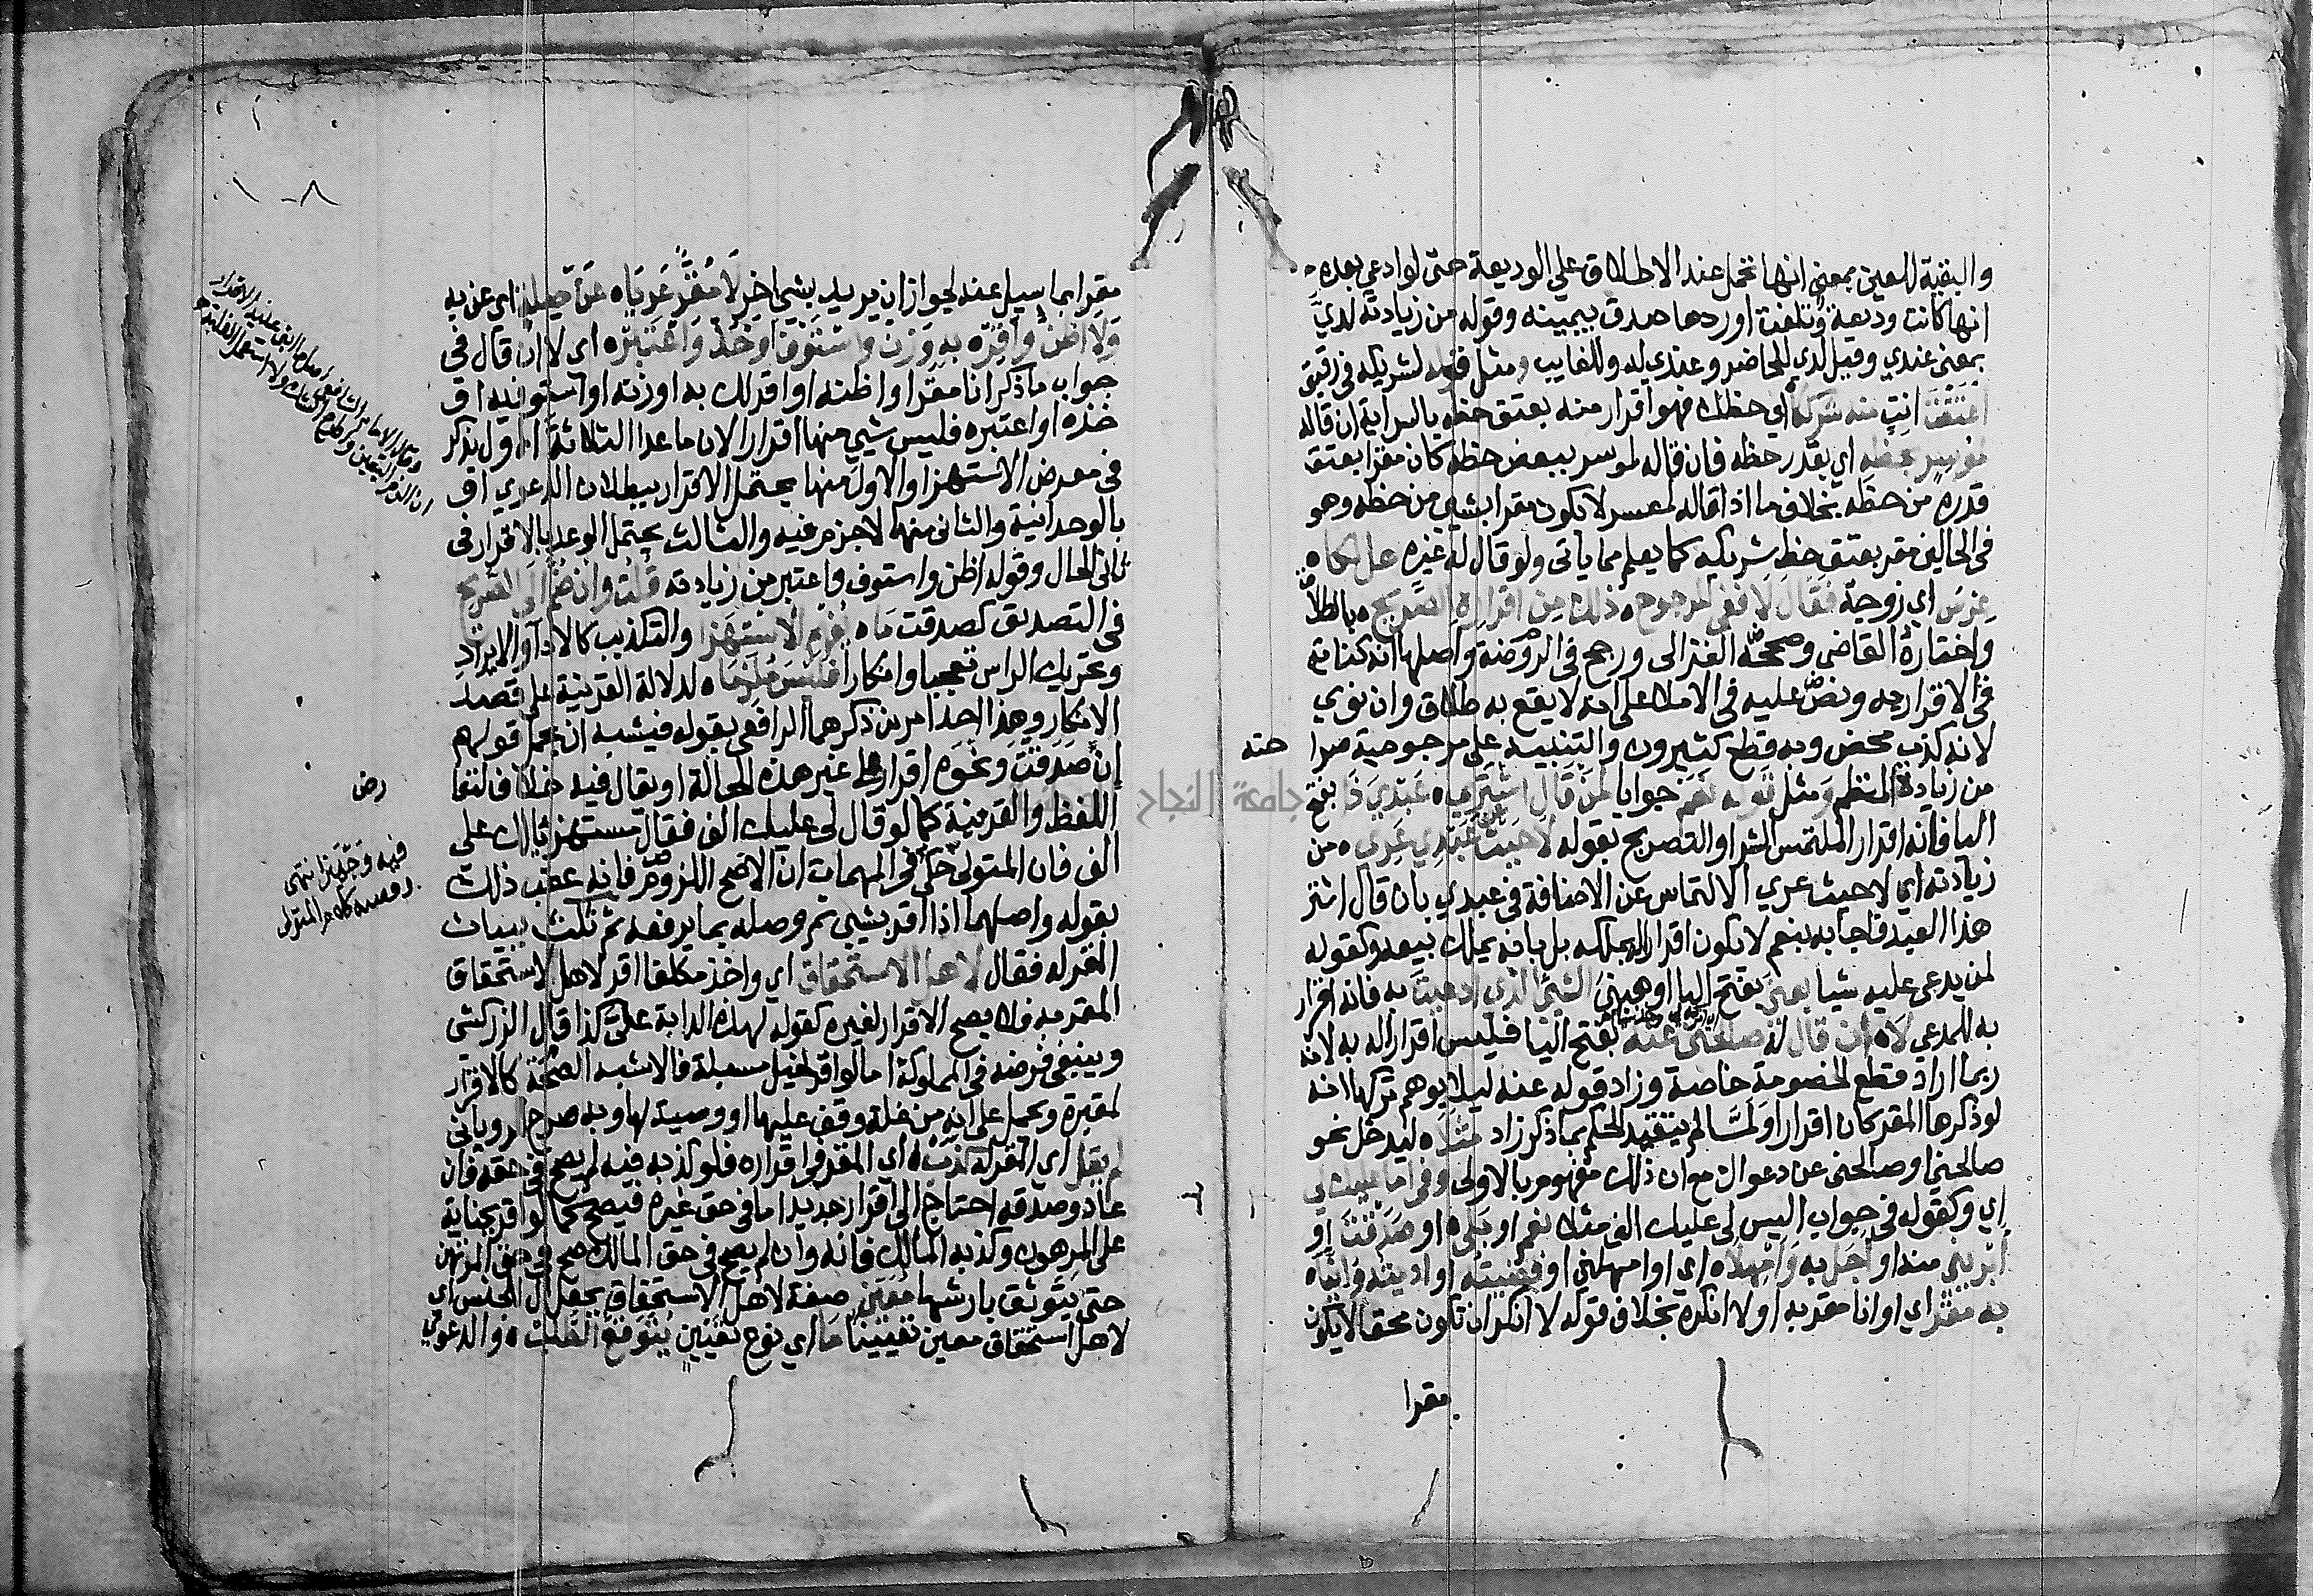 والبقية للعين بمعنى انها تحمل عند الاطلاق علي الوديعة حتى لو ادعي بعده
انها كانت وديعة وتلفت او ردها صدق بيمينه وقوله من زيادته لدي
بمعنى عندي وقيل لدي للحاضر وعندي له وللغايب ومثل قوله لشريكه في رقيق
اعتقت انت منه شركا اي حظك فهو اقرار منه بعتق حظه بالسراية ان قاله
لموسر بحظه اي بقدر حظه فان قاله لموسر ببعض حظه كان مقرا بعتق
قدره من حظه بخلاف ما اذا قاله لمعسر لا يكون مقرا بشي من حظه وهو
في الحالين مقر بعتق حظ شريكه كما يعلم مما ياتي ولو قال له غيره هل لك
عرس اي زوجة فقال لا ففي المرجوح ذلك من اقراره الصريح بالطلاق
واختاره القاضي وصححه الغزالي ورجح في الروضة واصلها انه كناية
في الاقرار به ونص عليه في الاملا على انه لا يقع به طلاق وان نوي
لانه كذب محض وبه قطع كثيرون والتنبيه على مرجوحية صرا حته
من زيادة النظم ومثل قوله نعم جوابا لمن قال اشتري عبدي ذا بفتح
اليا فانه اقرار الملتمس الشرا والتصريح بقوله لا حيث عبدي عري من
زيادته اي لا حيث عري الالتماس عن الاضافة في عبدي بان قال اشتر
هذا العبد فاجابه بنعم لا يكون اقرارا له بملكه بل بانه يملك بيعه وكقوله
لمن يدعي عليه شيا بعني بفتح اليا او هبني الشيئ الذي ادعيت به فانه اقرار
به للمدعي لا ان قال له صالحني عنه بفتح اليا فليس اقرارا له به لانه
ربما اراد قطع الخصومة خاصة وزاد قوله عنه ليلا يوهم تركها انه
لو ذكرها المقر كان اقرارا ولما لم يتقيد الحكم بما ذكر زاد مثلا ليدخل نحو
صالحني او صالحني عن دعواك مع ان ذلك مفهوم بالاولى وفي اما عليك لي
اي وكقوله في جواب اليس لي عليك الف مثلا نعم او بلى او صدقت او
ابريني منه او اجل به وامهلا اي او امهلني او قضيته او اديته وانا
به مقر اي او انا مقر به او لا انكره بخلاف قوله لا انكر ان تكون محقا لا يكون
مقرا
١٠٨
مقرا بما سيل عنه لجواز ان يريد بشي اخر لا مقر عريا عن صيلة اي عن به
ولا اظن واقره به وزن واستوف او خذ واعتبره اي لا ان قال في
جواب ما ذكر انا مقر او اظنه او اقر لك به او زنه او استوفيه او
خذه او اعتبره فليس شي منها اقرارا لان ما عدا الثلاثة الاول يذكر
في معرض الاستهزا والاول منها يحتمل الاقرار ببطلان الدعوي او
بالوحدانية والثاني منها لا جزم فيه والثالث يحتمل الوعد بالاقرار في
ثاني الحال وقوله اظن واستوف واعتبر من زيادته قلت وان ضم الى الصريح
في التصديق كصدقت ما يفهم الاستهزا والتكذيب كالاداوالابراد
وتحريك الراس تعجبا وانكارا فليس ملزما لدلالة القرينة على قصد
الانكار وهذا احد امرين ذكرهما الرافعي بقوله فيشبه ان يحمل قولهم
ان صدقت ونحوه اقرار على غير هذه الحالة او يقال فيه خلاف لتنا
اللفظ والقرينة كما لو قال لي عليك الف فقال مستهزيا لك علي
الف فان المتولي حكى في المهمات ان الاصح اللزوم فانه عقب ذلك
بقوله واصلهما اذا اقر بشي ثم وصله بما يرفعه ثم ثلث ببيان
المقر له فقال لاهل الاستحقاق اي واخذ مكلفا اقر لاهل لاستحقاق
المقر به فلا يصح الاقرار لغيره كقوله لهذه الدابة علي كذا قال الزركشي
وينبغي فرضه في المملوكة اما لو اقر لخيل مسبلة فالاشبه الصحة كالاقرار
لمقبرة ويحمل على انه من غلة وقف عليها او وصية لها وبه صرح الروياني
لم يقل اي المقر له كذبت اي المقر في اقراره فلو كذبه فيه لم يصح في حقه فان
عاد وصدقه احتاج الى اقرار جديد اما في حق غيره فيصح كما لو اقر بجناية
على المرهون وكذبه المالك فانه وان لم يصح في حق المالك صح في حق المرتهن
حتى يتوثق بارشها معين صفة لاهل الاستحقاق بجعل ال للجنس اي
لاهل استحقاق معين تعيينا ما اي نوع تعيين يتوقع الطلب والدعوي
وقال الامام الشافعي اصل ما ابني عليه الاقرار
ان الزم اليقين واطرح الشك ولا استعمل الغلبة
رض
جامعة النجاح